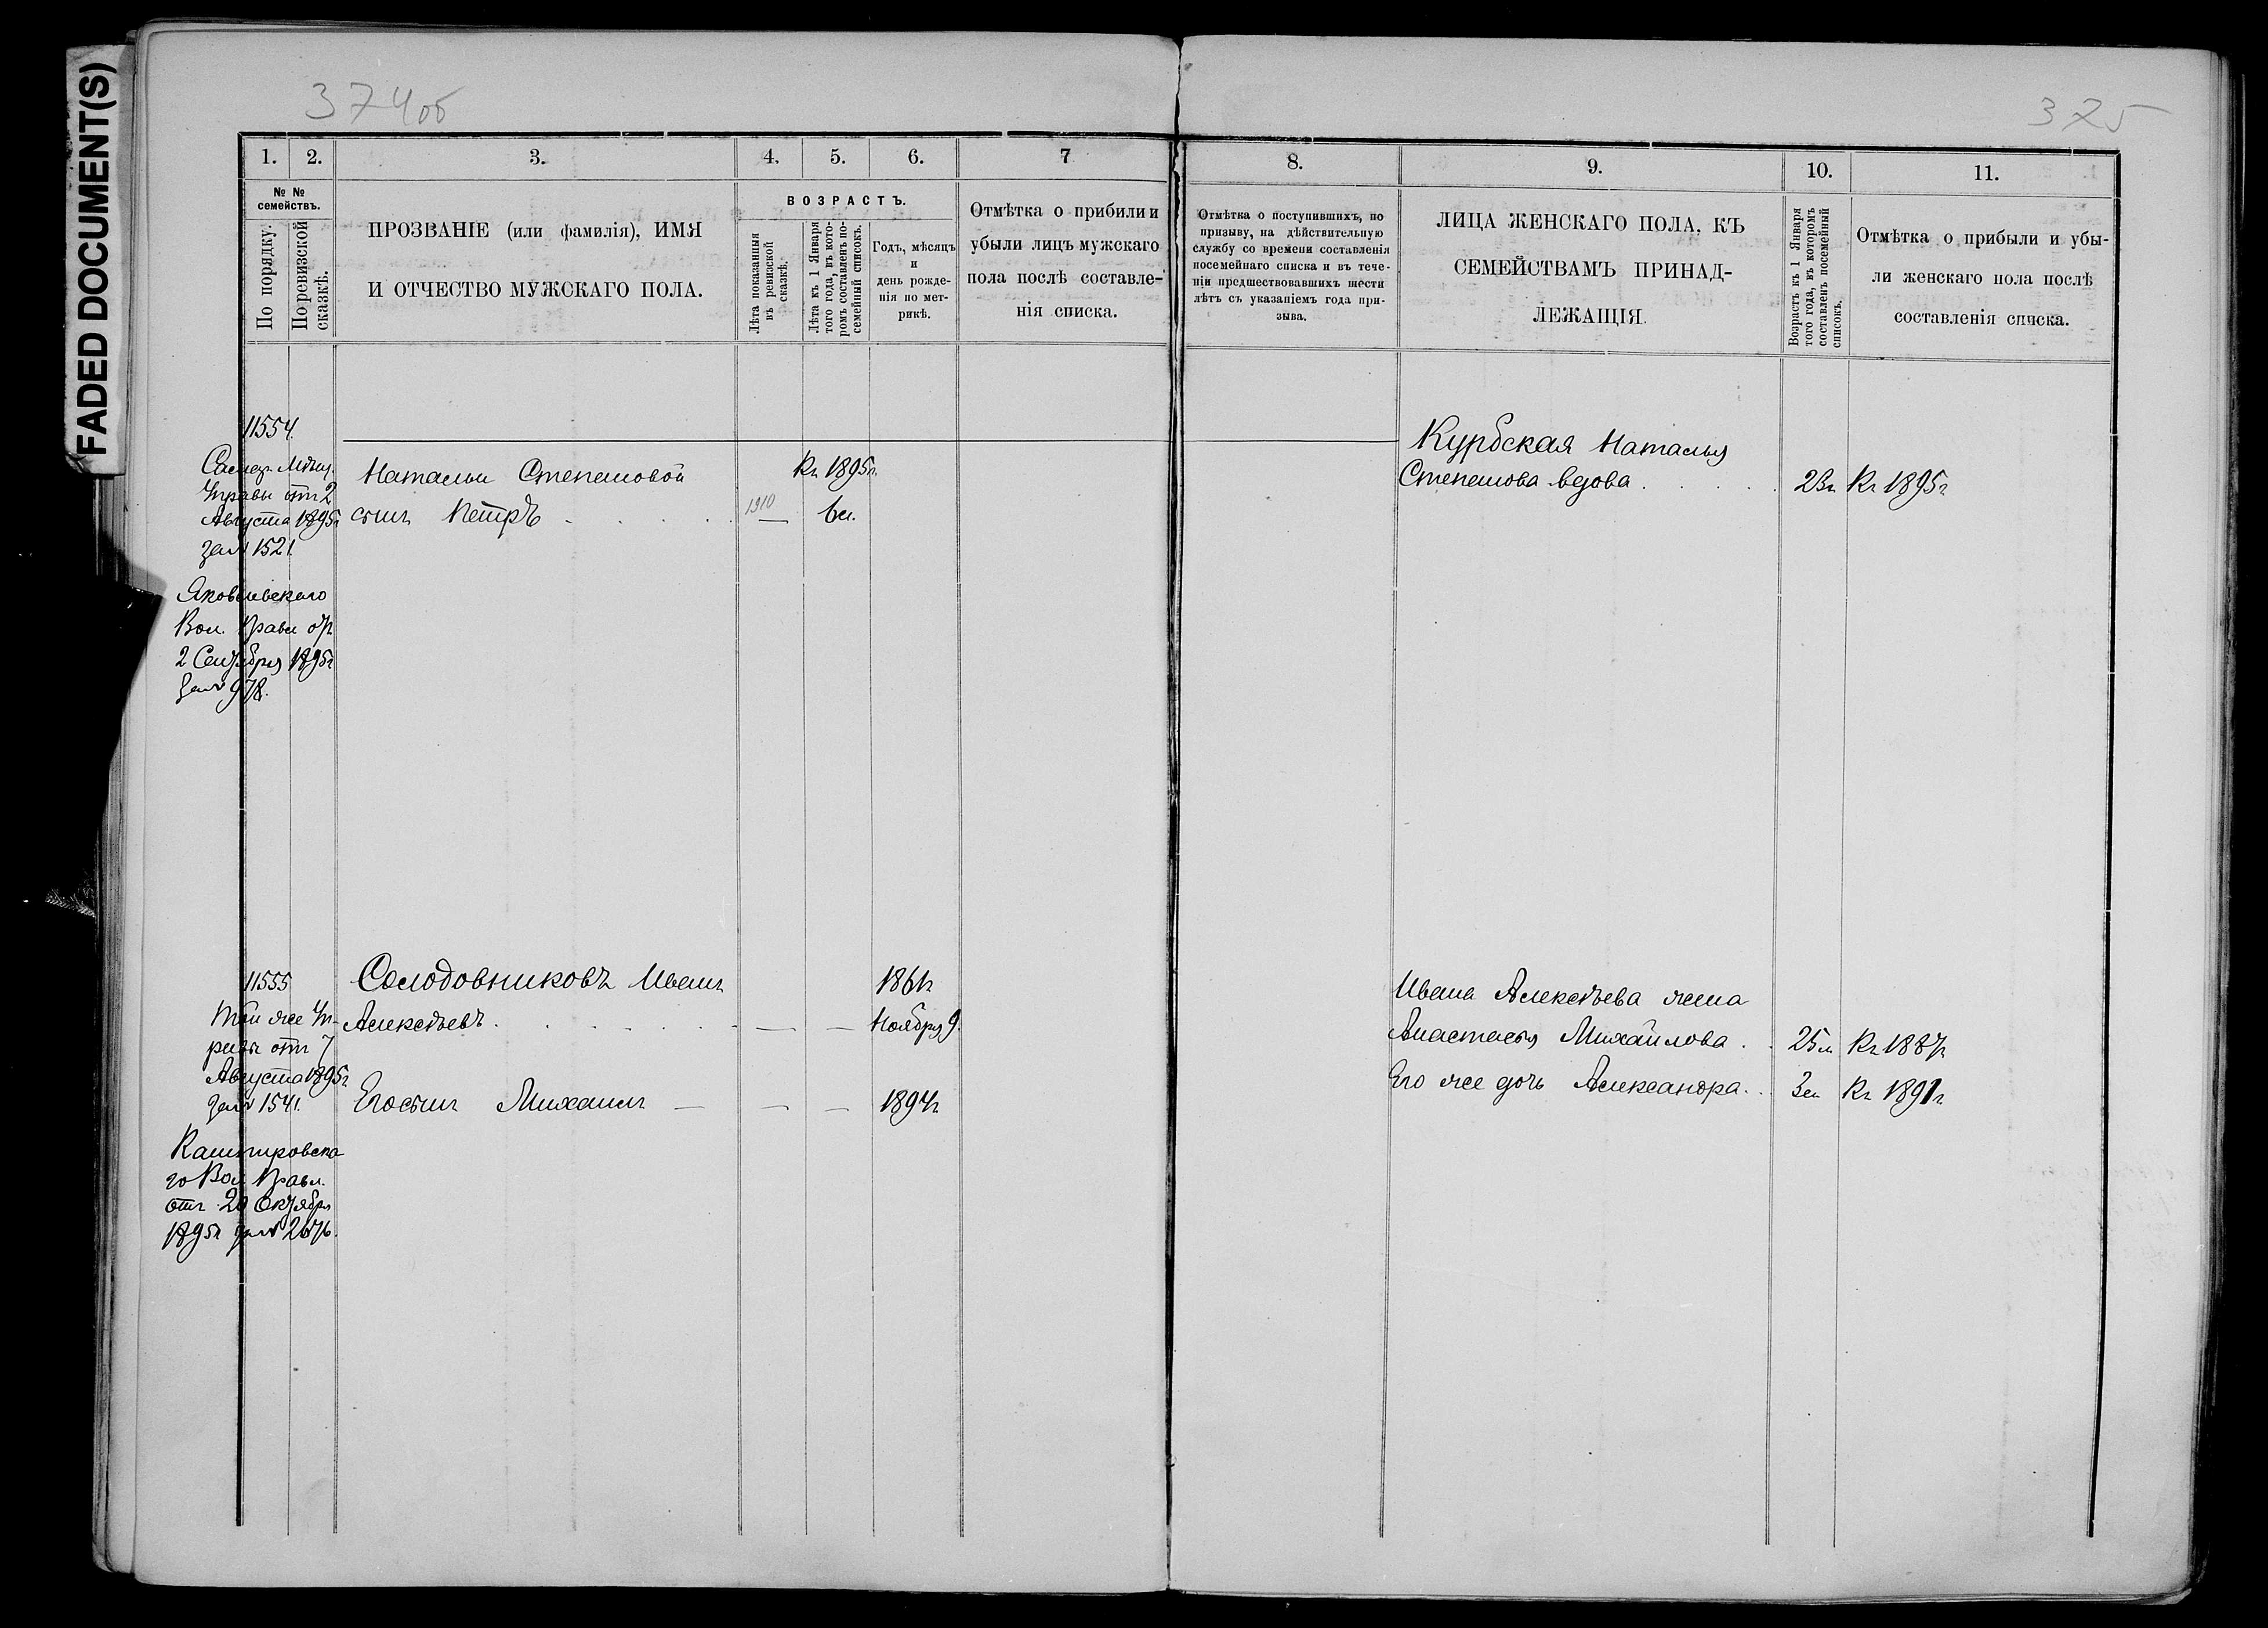 FADED DOCUMENT(S)
374об
375
1.
2.
3.
4.
5.
6.
7
8.
9.
10.
11.
№ №
семействъ.
По порядку.
По ревизской
сказкѣ.
ПРОЗВАНІЕ (или фамилія), ИМЯ
И ОТЧЕСТВО МУЖСКАГО ПОЛА.
ВОЗРАСТЪ.
Лѣта показанныя
въ ревизской
сказкѣ.
Лѣта къ 1 Января
того года, въ кото-
ромъ составленъ по-
семейный списокъ.
Годъ, мѣсяцъ
и
день рожде-
нія по мет-
рикѣ.
Отмѣтка о прибили и
убыли лицъ мужскаго
пола послѣ составле-
нія списка.
Отмѣтка о поступившихъ, по
призыву, на дѣйствительную
службу со времени составленія
посемейнаго списка и въ тече-
ніи предшествовавшихъ шести
лѣтъ съ указаніемъ года при-
зыва.
ЛИЦА ЖЕНСКАГО ПОЛА, КЪ
СЕМЕЙСТВАМЪ ПРИНАД-
ЛЕЖАЩІЯ.
Возрастъ къ 1 Января
того года, въ которомъ
составленъ посемейный
списокъ.
Отмѣтка о прибыли и убы-
ли женскаго пола послѣ
составленія списка.
11554.
Самар. Мѣщ.
Управы отъ 2
Августа 1895г
за № 1521.
Яковлевскаго
Вол. Правл отъ
2 Сентября 1895г
за № 978.
Натальи Степановой
сынъ Петръ
1910
Къ 1895г.
6 л.
Курбская Наталья
Степанова вдова
23г Къ 1895г
11555
Той же Уп-
равы отъ 7
Августа 1895г
за № 1541.
Кашпировска
го Вол. Правл.
отъ 20 Октября
1895г за №
Солодовниковъ Иванъ
Алексѣевъ
1861г
Ноября 9.
Его сынъ Михаилъ
1894г
Ивана Алексѣева жена
Анастасія Михайлова
25 л Къ 1887г
Его же дочь Александра
3 л Къ 1891г